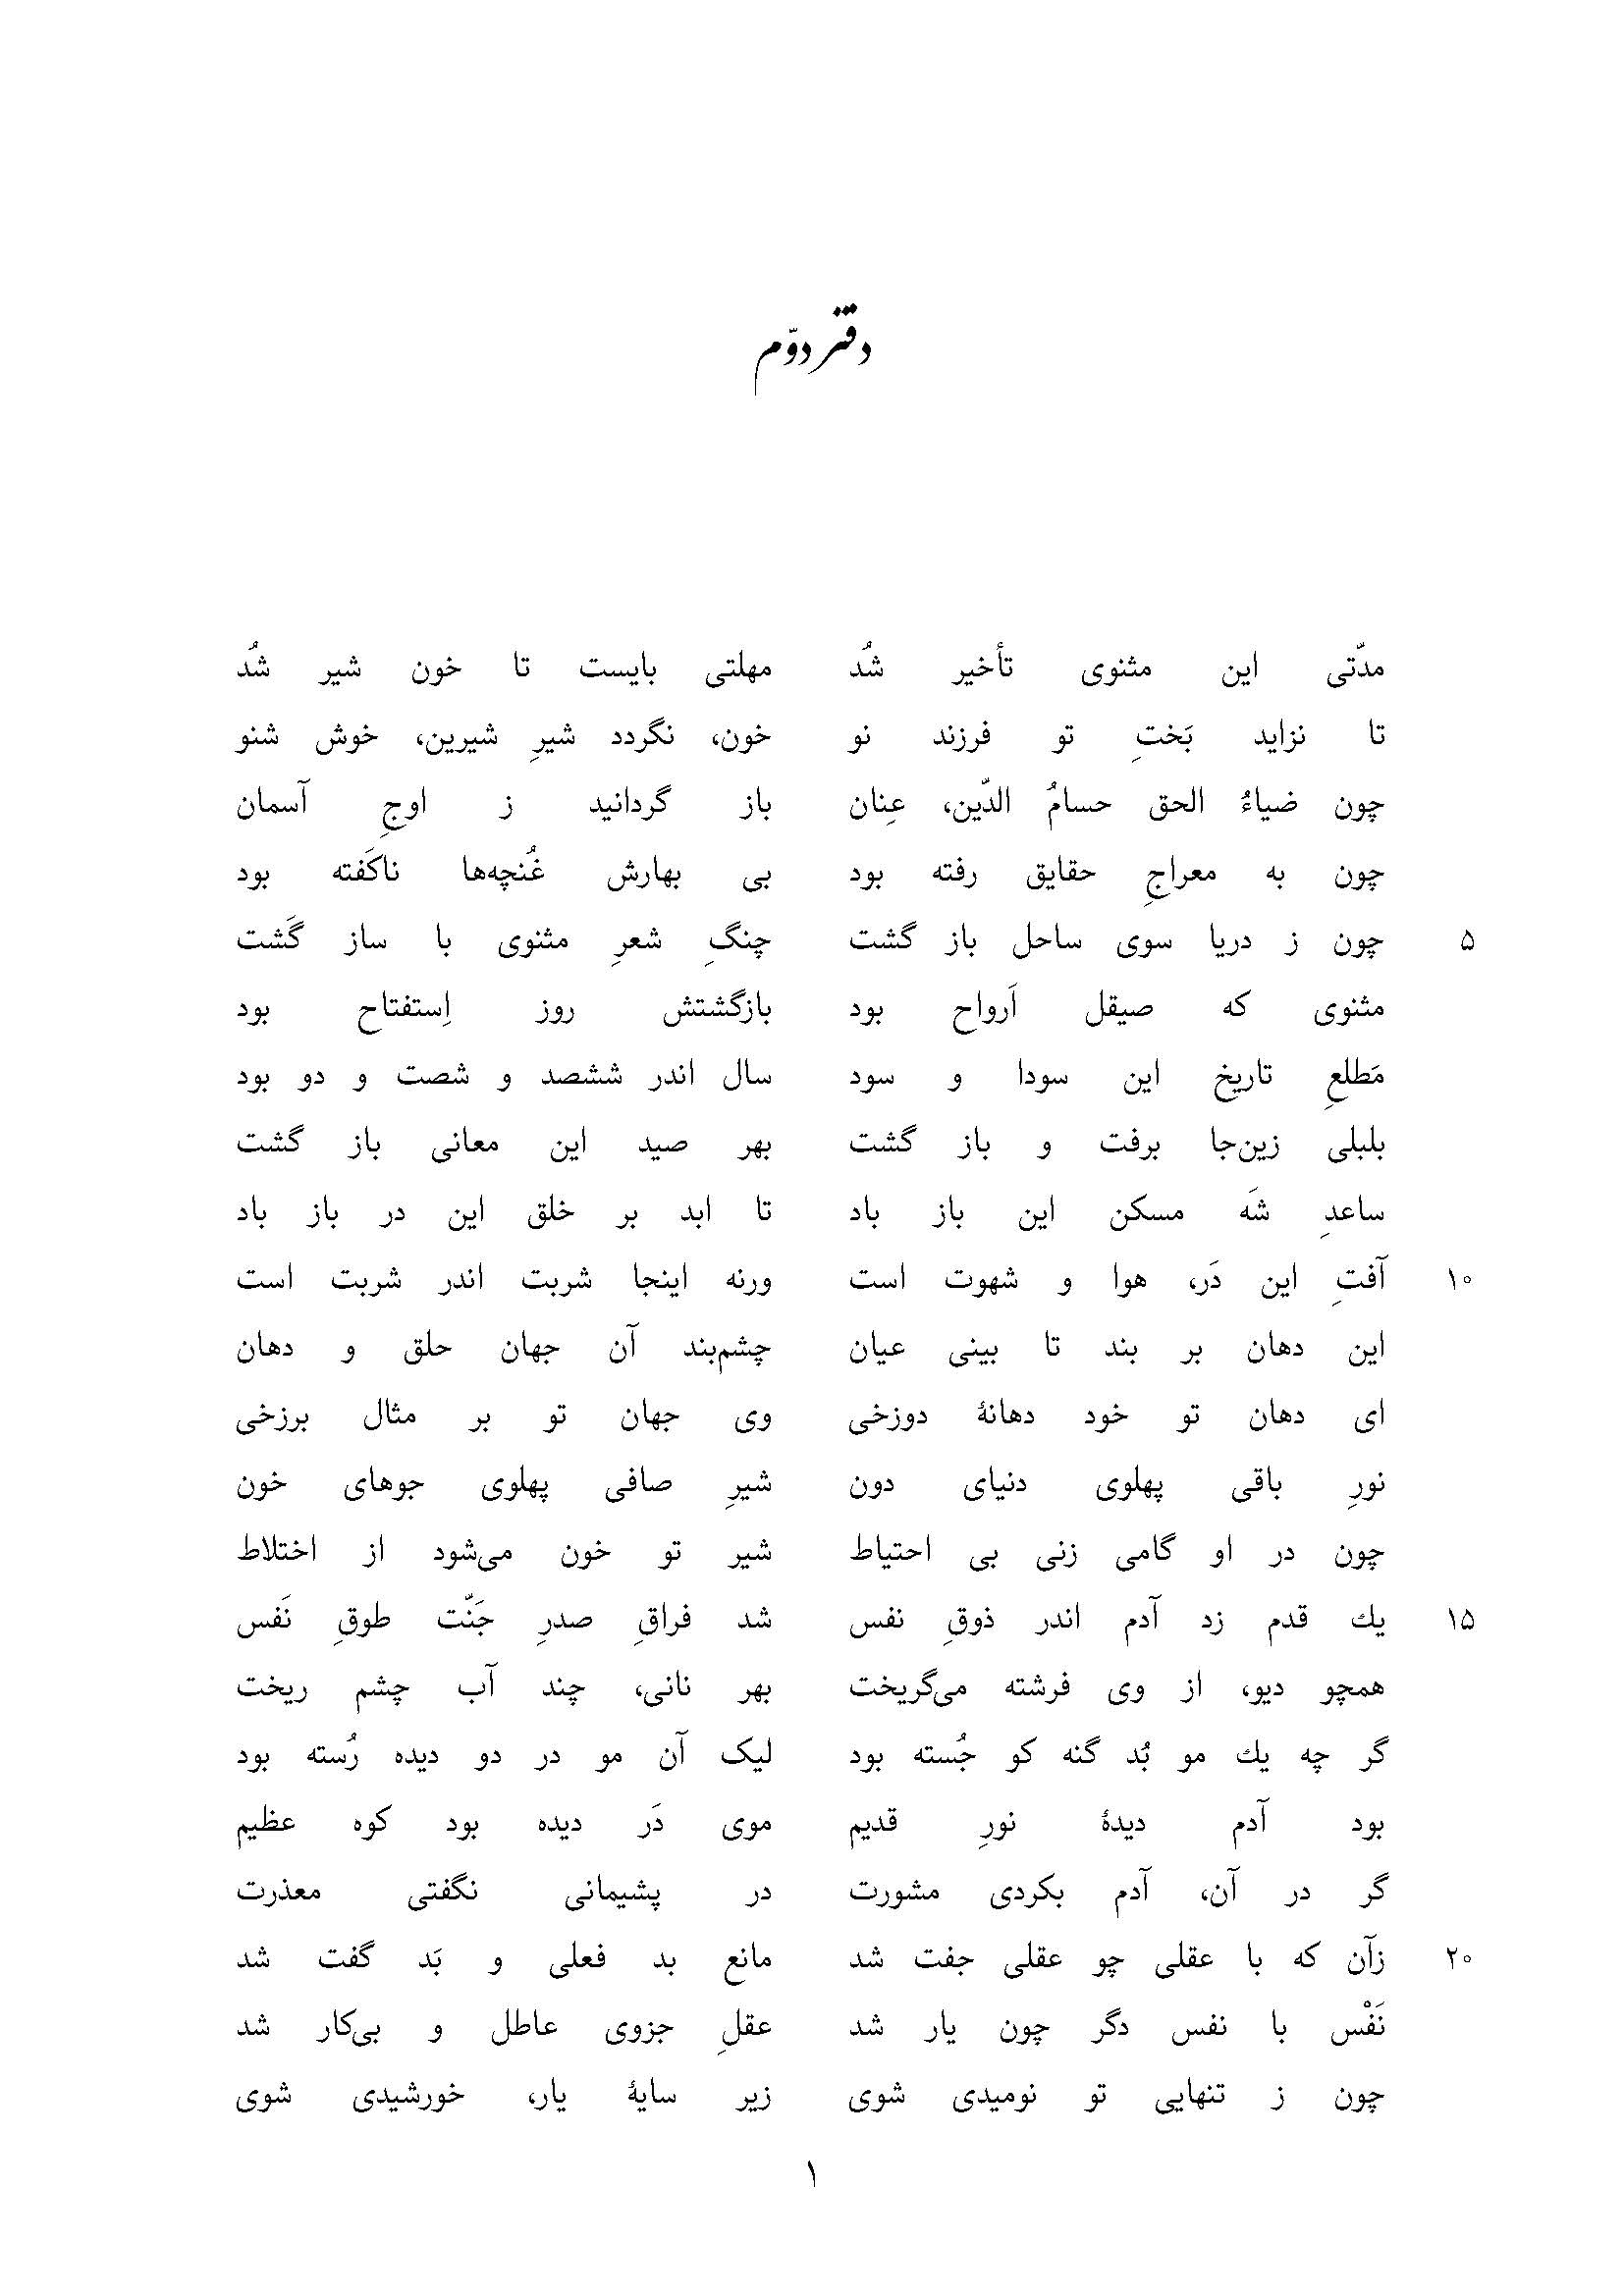 دفتر دوّم
مدّتی این مثنوی تأخیر شُد مهلتی بایست تا خون شیر شُد
تا نزاید بَختِ تو فرزند نو خون، نگردد شیرِ شیرین، خوش شنو
چون ضیاءُ الحق حسامُ الدّین، عِنان باز گردانید ز اوجِ آسمان
چون به معراجِ حقایق رفته بود بی بهارش غُنچه‌ها ناکَفته بود
۵ چون ز دریا سوی ساحل باز گشت چنگِ شعرِ مثنوی با ساز گَشت
مثنوی که صیقل اَرواح بود بازگشتش روز اِستفتاح بود
مَطلعِ تاریخ این سودا و سود سال اندر ششصد و شصت و دو بود
بلبلی زین‌جا برفت و باز گشت بهر صید این معانی باز گشت
ساعدِ شَه مسکن این باز باد تا ابد بر خلق این در باز باد
۱۰ آفتِ این دَر، هوا و شهوت است ورنه اینجا شربت اندر شربت است
این دهان بر بند تا بینی عیان چشم‌بند آن جهان حلق و دهان
ای دهان تو خود دهانهٔ دوزخی وی جهان تو بر مثال برزخی
نورِ باقی پهلوی دنیای دون شیرِ صافی پهلوی جوهای خون
چون در او گامی زنی بی احتیاط شیر تو خون می‌شود از اختلاط
۱۵ یك قدم زد آدم اندر ذوقِ نفس شد فراقِ صدرِ جَنّت طوقِ نَفس
همچو دیو، از وی فرشته می‌گریخت بهر نانی، چند آب چشم ریخت
گر چه یك مو بُد گنه کو جُسته بود لیک آن مو در دو دیده رُسته بود
بود آدم دیدهٔ نورِ قدیم موی دَر دیده بود کوه عظیم
گر در آن، آدم بکردی مشورت در پشیمانی نگفتی معذرت
۲۰ زآن که با عقلی چو عقلی جفت شد مانع بد فعلی و بَد گفت شد
نَفْس با نفس دگر چون یار شد عقلِ جزوی عاطل و بی‌کار شد
چون ز تنهایی تو نومیدی شوی زیر سایهٔ یار، خورشیدی شوی
۱